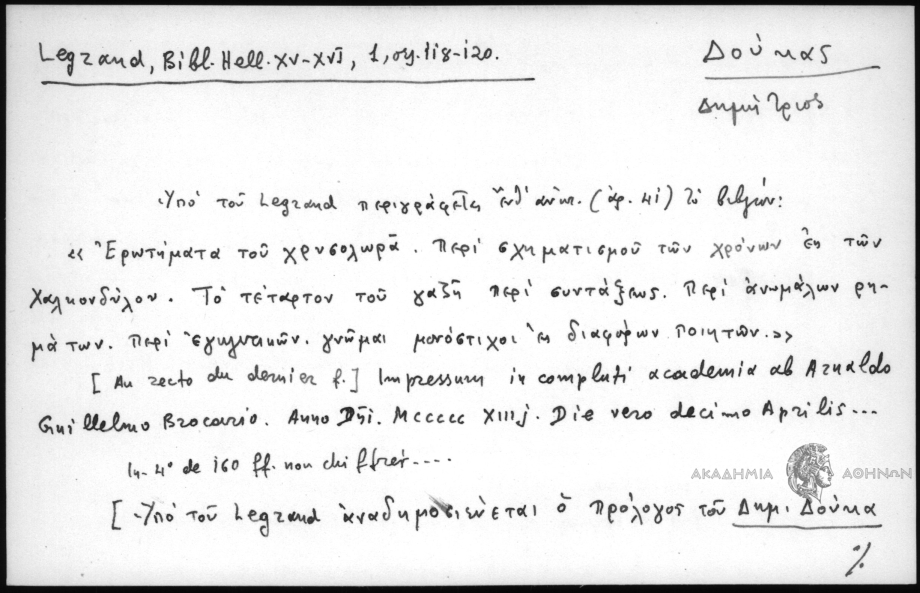 Legrand, Bibl. Hell. XV-XVI, 1, σσ. 118-120.
Δούκας
Δημήτριος
Ὑπό τοῦ Legrand περιγράφεται (ἀρ. 41) τό βιβλίον:
«Ἐρωτήματα τοῦ χρυσολωρᾶ. Περί σχηματισμοῦ τῶν χρόνων ἐκ τῶν
χαλκονδύλου. Τό τέταρτον τοῦ γαζῆ περί συντάξεως. Περί ἀνωμάλων ρη-
μάτων. Περί ἐγκλιτικῶν. γνῶμαι μονόστιχοι ἐκ διαφόρων ποιητῶν.»
[Au recto du dernier f.] Impressum in compluti academia ab Arnaldo
Guillelmo Brocario. Anno Dñi. Mccccc XIIIj. Die vero decimo Aprilis...
In-4º de 160 ff. non chiffrés....
ΑΚΑΔΗΜΙΑ ΑΘΗΝΩΝ
[Ὑπό τοῦ Legrand ἀναδημοσιεύεται ὁ πρόλογος τοῦ Δημ. Δούκα
%